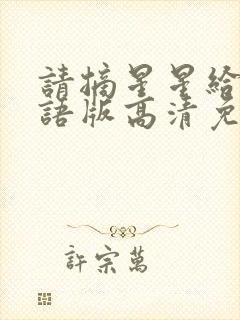 請摘星星給
語版高清免
許宗萬